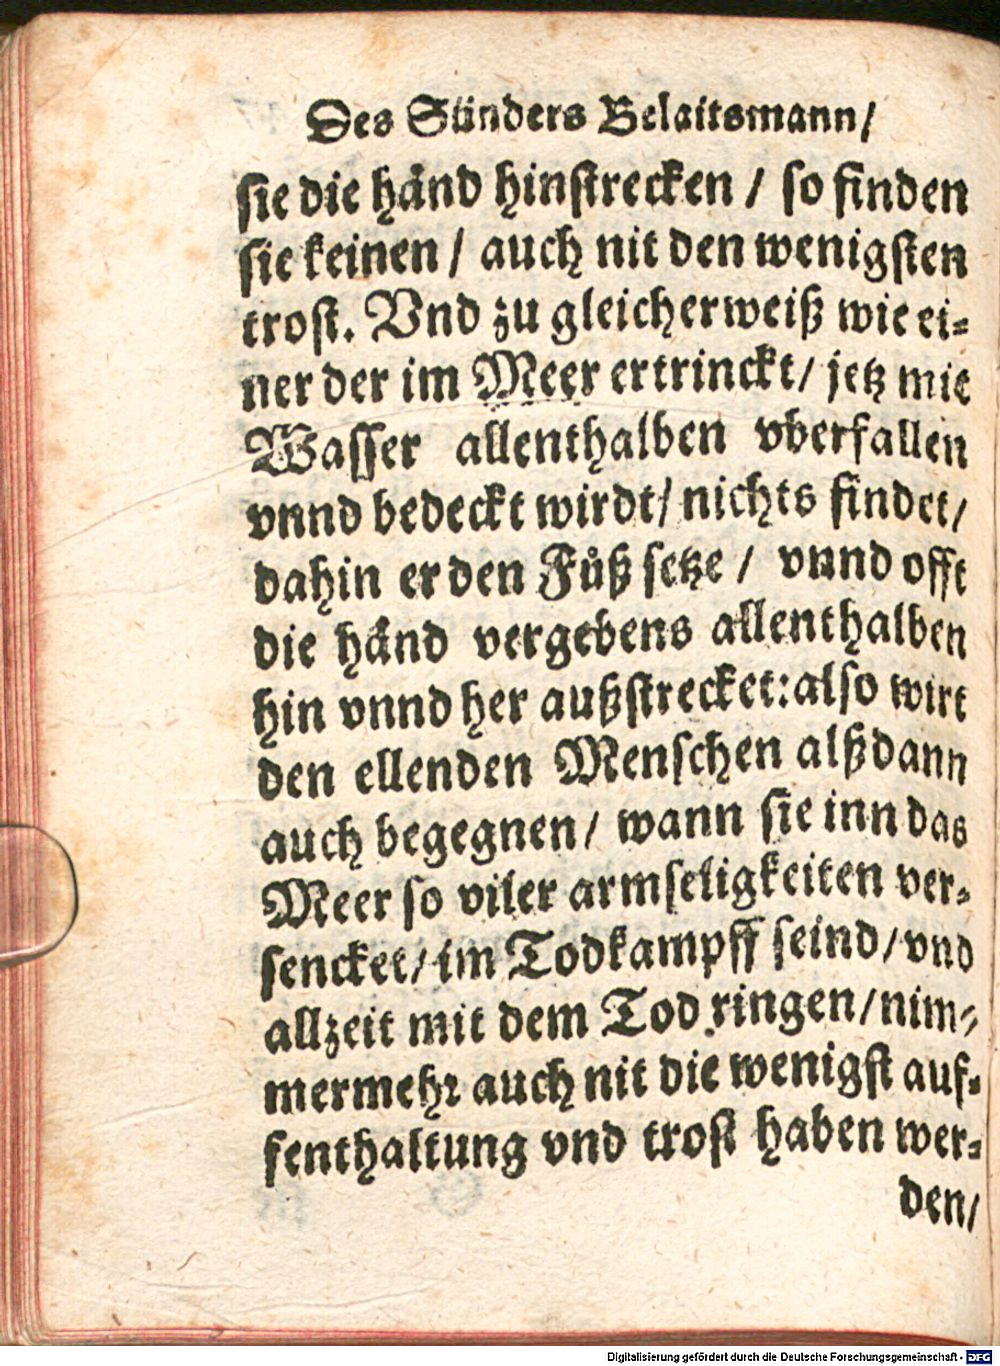 Des Sünders Belaitsmann/
sie die hånd hinstrecken / so finden
sie keinen / auch nit den wenigsten
trost. Vnd zu gleicherweiß wie ei⸗
ner der im Meer ertrinckt/ jetz mit
Wasser allenthalben vberfallen
vnnd bedeckt wirdt/ nichts findet/
dahin er den Fůß setze / vnnd offt
die hånd vergebens allenthalben
hin vnnd her außstrecket: also wirt
den ellenden Menschen alßdann
auch begegnen/ wann sie inn das
Meer so viler armseligkeiten ver⸗
sencket/ im Todkampff seind/ vnd
allzeit mit dem Tod ringen/ nim⸗
mermehr auch nit die wenigst auf⸗
fenthaltung vnd trost haben wer⸗
den/
Digitalisierung gefördert durch die Deutsche Forschungsgemeinschaft - DFG